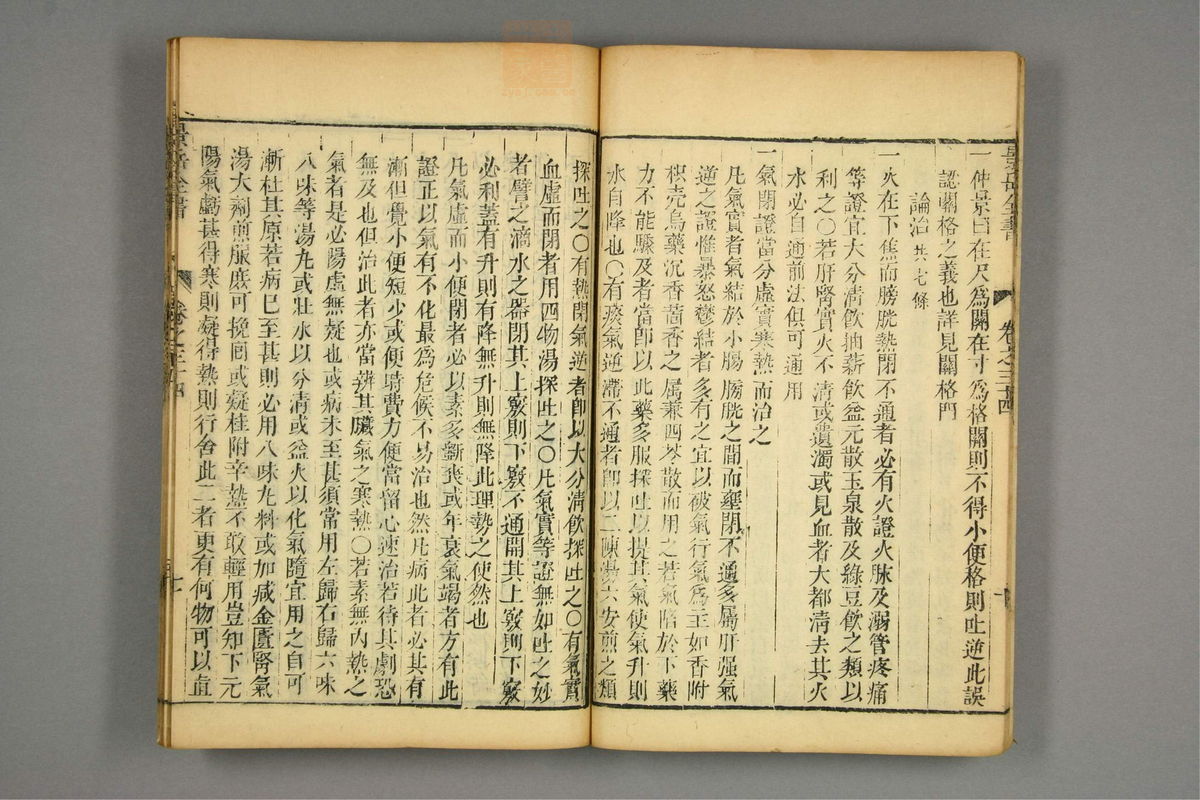 景岳全書
卷之三十四
一仲景曰在尺爲關在寸爲格關則不得小便格則吐逆此誤
認關格之義也詳見關格門
論治 共七條
一火在下焦而膀胱熱閉不通者必有火證火脉及溺管疼痛
等證宜大分清飲抽薪飲益元散玉泉散及綠豆飲之類以
利之○若肝腎實火不清或遺濁或見血者大都清去其火
水必自通前法俱可通用
一氣閉證當分虛實寒熱而治之
凡氣實者氣結於小腸膀胱之間而壅閉不通多屬肝强氣
逆之證惟暴怒鬱結者多有之宜以破氣行氣爲主如香附
枳壳烏藥沉香茴香之屬兼四苓散而用之若氣陷於下藥
力不能驟及者當卽以此藥多服探吐以提其氣使氣升則
水自降也○有痰氣逆滯不通者卽以二陳湯六安煎之類
探吐之○有熱閉氣逆者卽以大分清飲探吐之○有氣實
血虛而閉者用四物湯探吐之○凡氣實等證無如吐之妙
者譬之滴水之器閉其上竅則下竅不通開其上竅則下竅
必利葢有升則有降無升則無降此理勢之使然也
凡氣虛而小便閉者必以素多斵喪或年衰氣竭者方有此
證正以氣有不化最爲危候不易治也然凡病此者必其有
漸但覺小便短少或便時費力便當留心速治若待其劇恐
無及也但治此者亦當辨其臟氣之寒熱○若素無內熱之
氣者是必陽虛無疑也或病未至甚須常用左歸右歸六味
八味等湯九或壯水以分清或益火以化氣隨宜用之自可
漸杜其原若病已至甚則必用八味九料或加减金匱腎氣
湯大劑煎服庶可挽囘或疑桂附辛熱不敢輕用豈知下元
陽氣虧甚得寒則凝得熱則行舍此二者更有何物可以直
景岳全書
卷之三十四
七